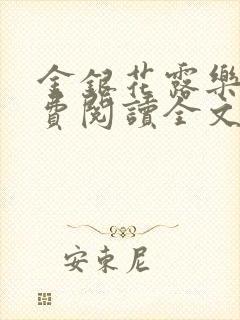 金銀花露樂
費閱讀全文
安東尼